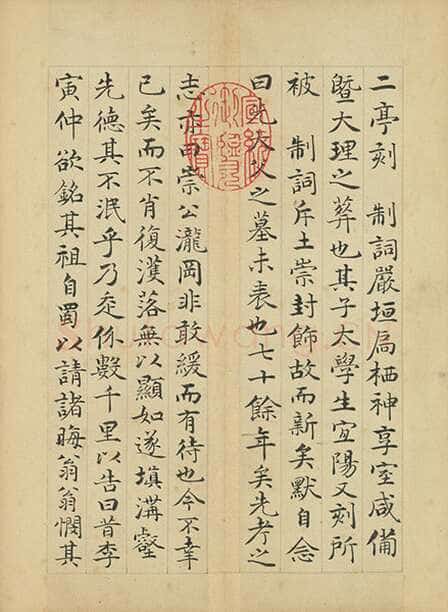 二亭刻 制詞嚴垣扃栖神享室咸備
暨大理之葬也其子太學生宜陽又刻所
被 制詞斥土崇封飾故而新矣默自念
曰此大父之墓未表也七十餘年矣先考之
志亦曰崇公瀧岡非敢緩而有待也今不幸
已矣而不肖復濩落無以顯如遂填溝壑
先德其不泯乎乃走伻數千里以告曰昔李
寅仲欲銘其祖自蜀以請諸晦翁翁憫其
宣統御覽之寶